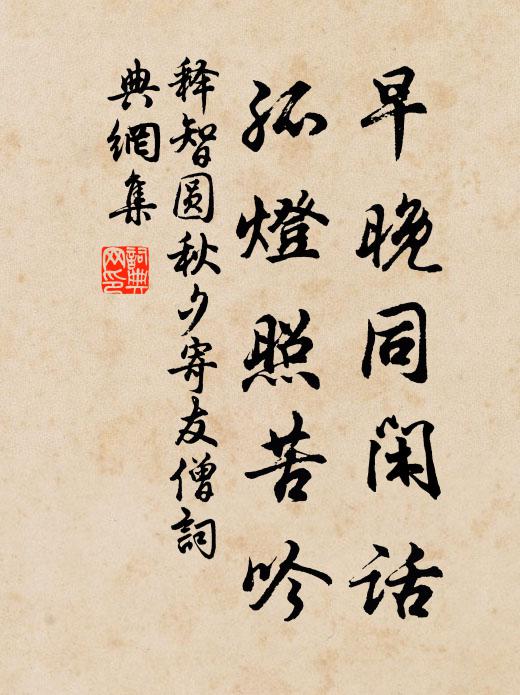 早晚同閑话
孤燈照苦吟
释智圆秋夕寄友僧詞
典網集
詞典網印